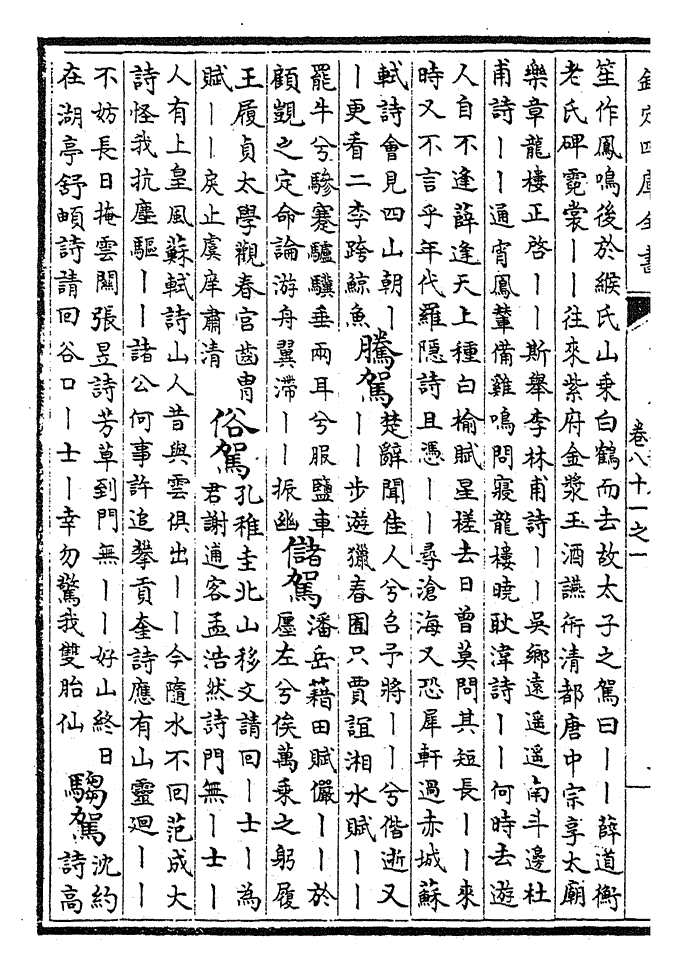 欽定四庫全書
卷八十一之一
笙作鳳鳴後於緱氏山乘白鶴而去故太子之駕曰｜｜薛道衡
老氏碑霓裳｜｜往來紫府金漿玉酒讌衎清都唐中宗享太廟
樂章龍樓正啓｜｜斯舉李林甫詩｜｜吳鄉遠遥遥南斗邊杜
甫詩｜｜通宵鳳輦備雞鳴問寢龍樓曉耿湋詩｜｜何時去遊
人自不逢薛逢天上種白榆賦星槎去日曾莫問其短長｜｜來
時又不言乎年代羅隱詩且憑｜｜尋滄海又恐犀軒過赤城蘇
軾詩會見四山朝｜
｜更看二李跨鯨魚
騰駕
楚辭聞佳人兮召予將｜｜兮偕逝又
｜｜步遊獵春囿只賈誼湘水賦｜｜
罷牛兮驂蹇驢驥垂兩耳兮服鹽車
顧覬之定命論游舟翼滯｜｜振幽
儲駕
潘岳藉田賦儼｜｜於
廛左兮俟萬乘之躬履
王履貞太學觀春宮齒胄
賦｜｜戾止虞庠肅清
俗駕
孔稚圭北山移文請回｜士｜為
君謝逋客孟浩然詩門無｜士｜
人有上皇風蘇軾詩山人昔與雲俱出｜｜今隨水不回范成大
詩怪我抗塵驅｜｜諸公何事許追攀貢奎詩應有山靈迴｜｜
不妨長日掩雲關張昱詩芳草到門無｜｜好山終日
在湖亭舒頔詩請回谷口｜士｜幸勿驚我雙胎仙
騶駕
沈約
詩高